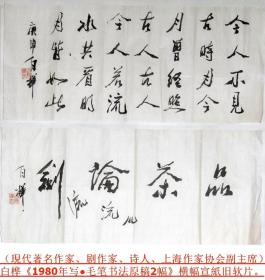 今人不見
古時月今
月曾經照
古人古人
今人若流
水共看明
月皆如此
庚申 白樺
品
茶
論
劍
白樺
（现代著名作家、剧作家、诗人、上海作家协会副主席）
白桦《1980年写●毛笔书法原稿2幅》横幅宣纸旧软片。